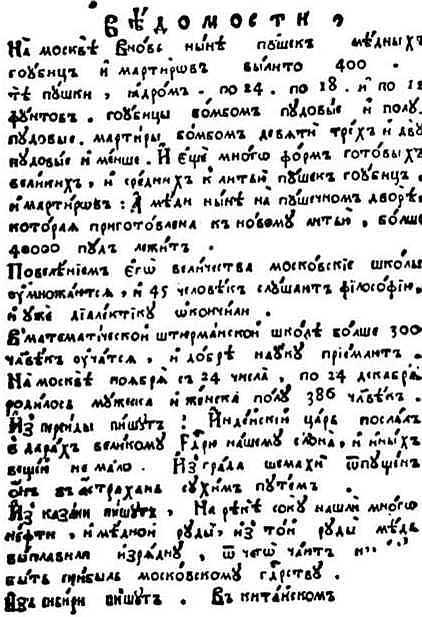 ВѢДОМОСТИ,
На москвѣ вновь нынѣ пушекъ мѣдныхъ
гоубицъ и мартировъ вылито 400.
тѣ пушки, ядромъ. по 24. по 18. и по 12
фунтовъ. гоубицы бомбомъ пудовые и полу
пудовые. мартиры бомбомъ девяти трехъ и дву
пудовые и менше. И еще много формъ готовыхъ
великихъ, и среднихъ к литью пушекъ гоубицъ.
и мартировъ: А мѣди нынѣ на пушечномъ дворѣ,
которая приготовлена къ новому литью, болше
40000 пудъ лежитъ.
Повелѣнїемъ его величества московскїе школы
умножаются, и 45 человѣкъ слушаютъ фїлософїю,
и уже дїалектїку ѡкончили.
В математической штюрманской школѣ болше 300
члвѣкъ учатся, и добрѣ науку прїемлютъ.
На москвѣ ноября съ 24 числа, по 24 декабря
родилось мужеска и женска полу 386 члвѣкъ.
Из персиды пишутъ: Индѣйскїй царь послалъ
в дарахъ великому Гдрю нашему слона, и иныхъ
вещей не мало. Из града шемахи ѿпущенъ
онъ въ астрахань сухимъ путемъ.
Из казани пишутъ, На рѣкѣ соку нашли много
нефти, и мѣдной руды, из той руды мѣдь
выплавили изрядну, ѿ чегѡ чаютъ
быть прибыль московскому гдрству.
Изъ сибири пишутъ. Въ китайскомъ